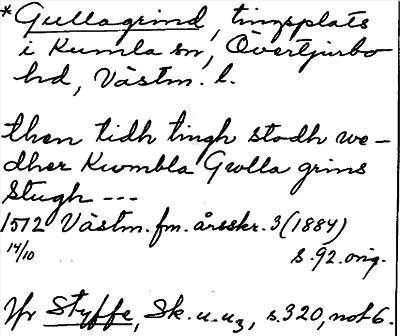 *Gullagrind, tingsplats
i Kumla sn, Övertjurbo
hd, Västm. l.
then tidh tingh stodh we-
dher Kwmbla Gwlla grins
stugh ---
1512 Västm. fm. årsskr. 3 (1884)
14/10 s. 92. orig.
Jfr Styffe, Sk. u. u3, s. 320, not 6.